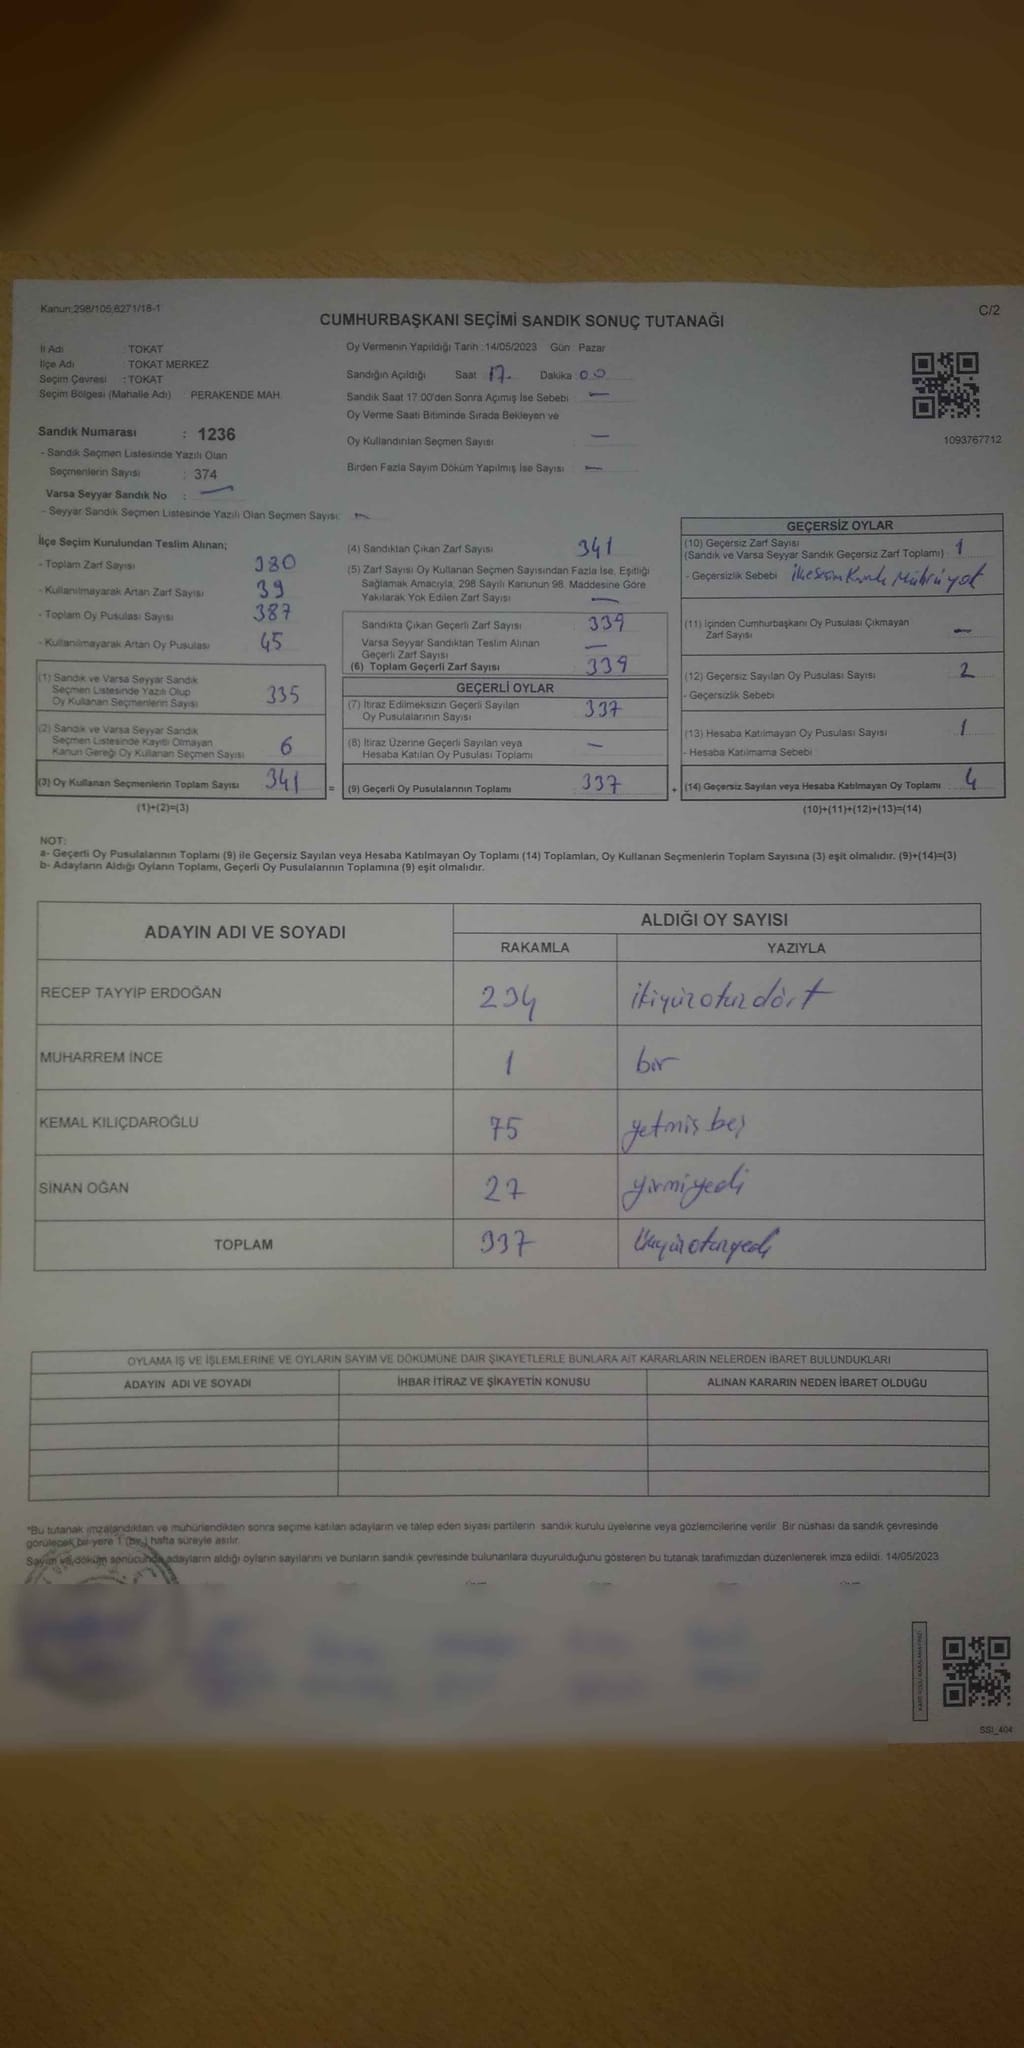 Kanun:298/105,6271/18-1
C/2
CUMHURBAŞKANI SEÇİMİ SANDIK SONUÇ TUTANAĞI
İl Adı : TOKAT
İlçe Adı : TOKAT MERKEZ
Seçim Çevresi : TOKAT
Seçim Bölgesi (Mahalle Adı) : PERAKENDE MAH.
Sandık Numarası : 1236
- Sandık Seçmen Listesinde Yazılı Olan
Seçmenlerin Sayısı : 374
Varsa Seyyar Sandık No : —
- Seyyar Sandık Seçmen Listesinde Yazılı Olan Seçmen Sayısı: —
Oy Vermenin Yapıldığı Tarih :14/05/2023 Gün Pazar
Sandığın Açıldığı Saat 17. Dakika 00
Sandık Saat 17:00'den Sonra Açımış İse Sebebi —
Oy Verme Saati Bitiminde Sırada Bekleyen ve
Oy Kullandırılan Seçmen Sayısı —
Birden Fazla Sayım Döküm Yapılmış İse Sayısı —
1093767712
İlçe Seçim Kurulundan Teslim Alınan;
- Toplam Zarf Sayısı 380
- Kullanılmayarak Artan Zarf Sayısı 39
- Toplam Oy Pusulası Sayısı 387
- Kullanılmayarak Artan Oy Pusulası 45
(1) Sandık ve Varsa Seyyar Sandık
Seçmen Listesinde Yazılı Olup
Oy Kullanan Seçmenlerin Sayısı 335
(2) Sandık ve Varsa Seyyar Sandık
Seçmen Listesinde Kayıtlı Olmayan
Kanun Gereği Oy Kullanan Seçmen Sayısı 6
(3) Oy Kullanan Seçmenlerin Toplam Sayısı 341
(1)+(2)=(3)
=
(4) Sandıktan Çıkan Zarf Sayısı 341
(5) Zarf Sayısı Oy Kullanan Seçmen Sayısından Fazla İse, Eşitliği
Sağlamak Amacıyla, 298 Sayılı Kanunun 98. Maddesine Göre
Yakılarak Yok Edilen Zarf Sayısı —
Sandıkta Çıkan Geçerli Zarf Sayısı 339
Varsa Seyyar Sandıktan Teslim Alınan
Geçerli Zarf Sayısı —
(6) Toplam Geçerli Zarf Sayısı 339
GEÇERLİ OYLAR
(7) İtiraz Edilmeksizin Geçerli Sayılan
Oy Pusulalarının Sayısı 337
(8) İtiraz Üzerine Geçerli Sayılan veya
Hesaba Katılan Oy Pusulası Toplamı —
(9) Geçerli Oy Pusulalarının Toplamı 337
+
GEÇERSİZ OYLAR
(10) Geçersiz Zarf Sayısı
(Sandık ve Varsa Seyyar Sandık Geçersiz Zarf Toplamı) 1
- Geçersizlik Sebebi ilçe Seçim Kurulu Mührü yok
(11) İçinden Cumhurbaşkanı Oy Pusulası Çıkmayan
Zarf Sayısı —
(12) Geçersiz Sayılan Oy Pusulası Sayısı 2
- Geçersizlik Sebebi
(13) Hesaba Katılmayan Oy Pusulası Sayısı 1
- Hesaba Katılmama Sebebi
(14) Geçersiz Sayılan veya Hesaba Katılmayan Oy Toplamı 4
(10)+(11)+(12)+(13)=(14)
NOT:
a- Geçerli Oy Pusulalarının Toplamı (9) ile Geçersiz Sayılan veya Hesaba Katılmayan Oy Toplamı (14) Toplamları, Oy Kullanan Seçmenlerin Toplam Sayısına (3) eşit olmalıdır. (9)+(14)=(3)
b- Adayların Aldığı Oyların Toplamı, Geçerli Oy Pusulalarının Toplamına (9) eşit olmalıdır.
ADAYIN ADI VE SOYADI
ALDIĞI OY SAYISI
RAKAMLA YAZIYLA
RECEP TAYYİP ERDOĞAN 234 ikiyüzotuzdört
MUHARREM İNCE 1 bir
KEMAL KILIÇDAROĞLU 75 yetmişbeş
SİNAN OĞAN 27 yirmiyedi
TOPLAM 337 Üçyüzotuzyedi
OYLAMA İŞ VE İŞLEMLERİNE VE OYLARIN SAYIM VE DÖKÜMÜNE DAİR ŞİKAYETLERLE BUNLARA AİT KARARLARIN NELERDEN İBARET BULUNDUKLARI
ADAYIN ADI VE SOYADI İHBAR İTİRAZ VE ŞİKAYETİN KONUSU ALINAN KARARIN NEDEN İBARET OLDUĞU
*Bu tutanak imzalandıktan ve mühürlendikten sonra seçime katılan adayların ve talep eden siyasi partilerin sandık kurulu üyelerine veya gözlemcilerine verilir. Bir nüshası da sandık çevresinde
görülecek bir yere 1 (bir) hafta süreyle asılır.
Sayım ve döküm sonucunda adayların aldığı oyların sayılarını ve bunların sandık çevresinde bulunanlara duyurulduğunu gösteren bu tutanak tarafımızdan düzenlenerek imza edildi. 14/05/2023
SSI_404